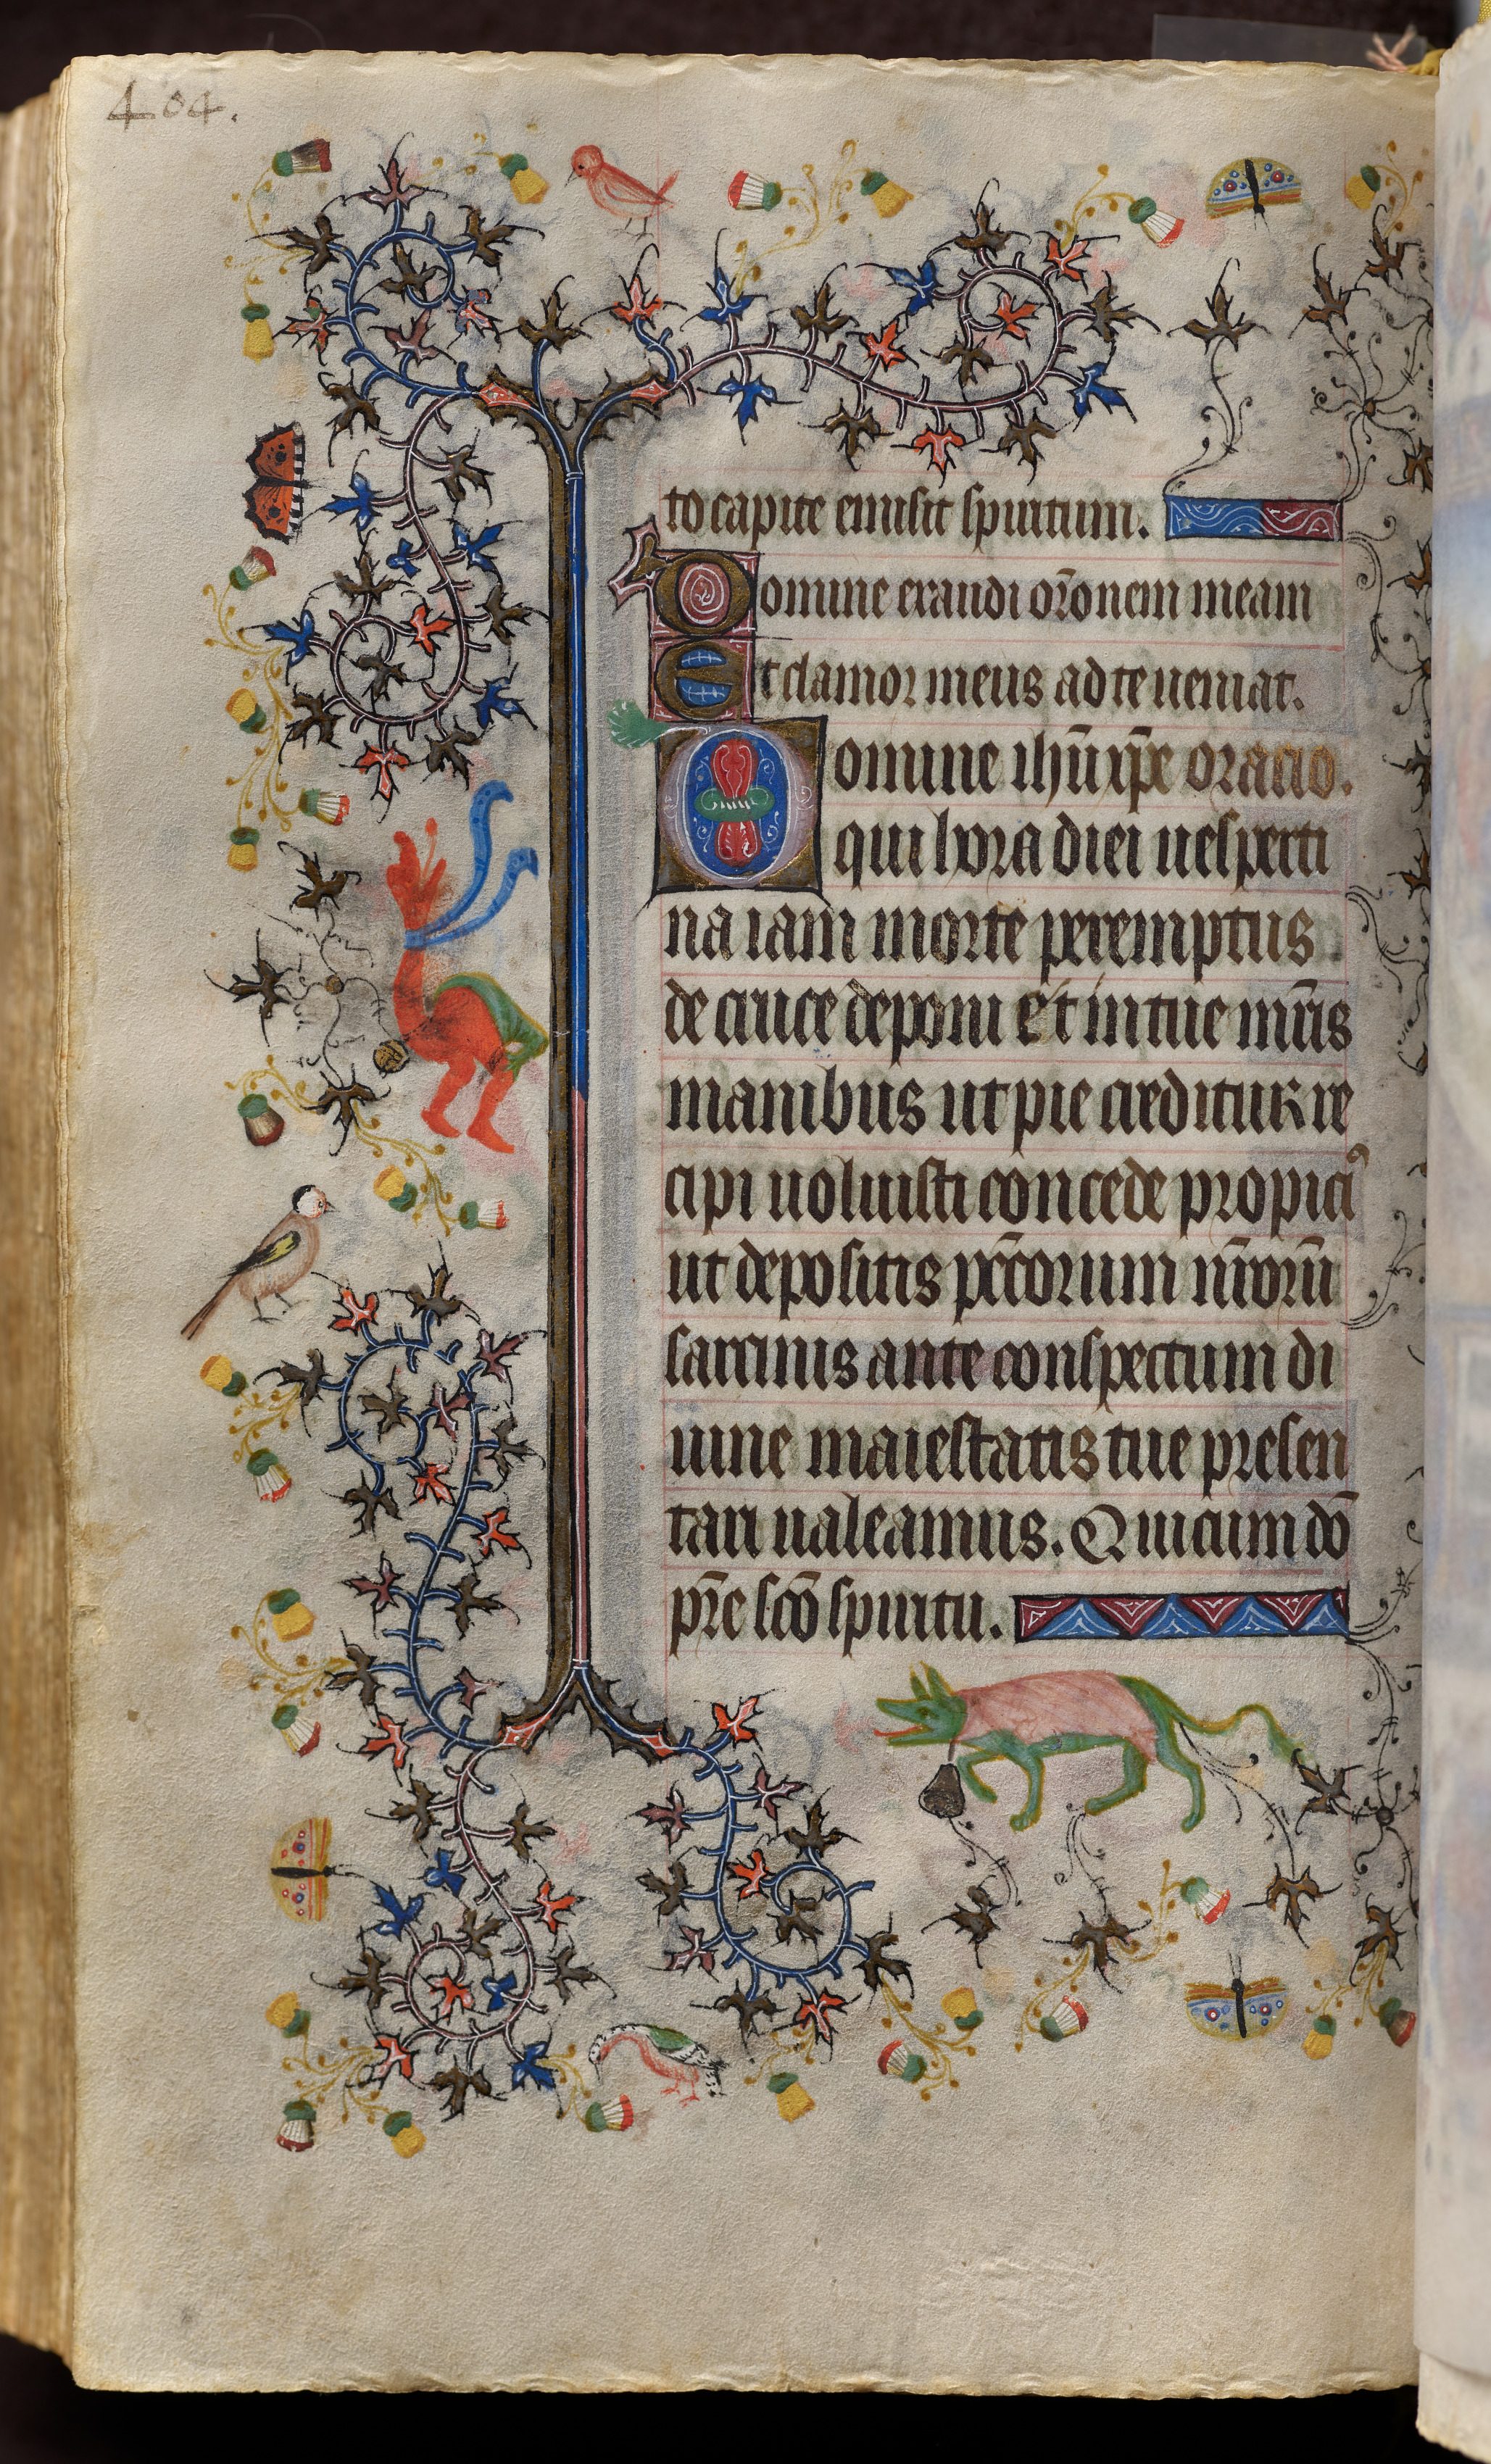 404.
to capite emisit spiritum.
Domine exaudi or̄onem meam
Et clamor meus ad te ueniat.
Domine ihū xp̄e oracio.
qui hora diei uesperti
na iam morte peremptus
de cruce deponi et in tue mr̄is
manibus ut pie creditur re
cipi uoluisti concede propiciꝰ
ut depositis pc̄corum nr̄orū
sarcinis ante conspectum di
uine maiestatis tue presen
tari ualeamus. Qui cum dō
pr̄e sc̄o spiritu.